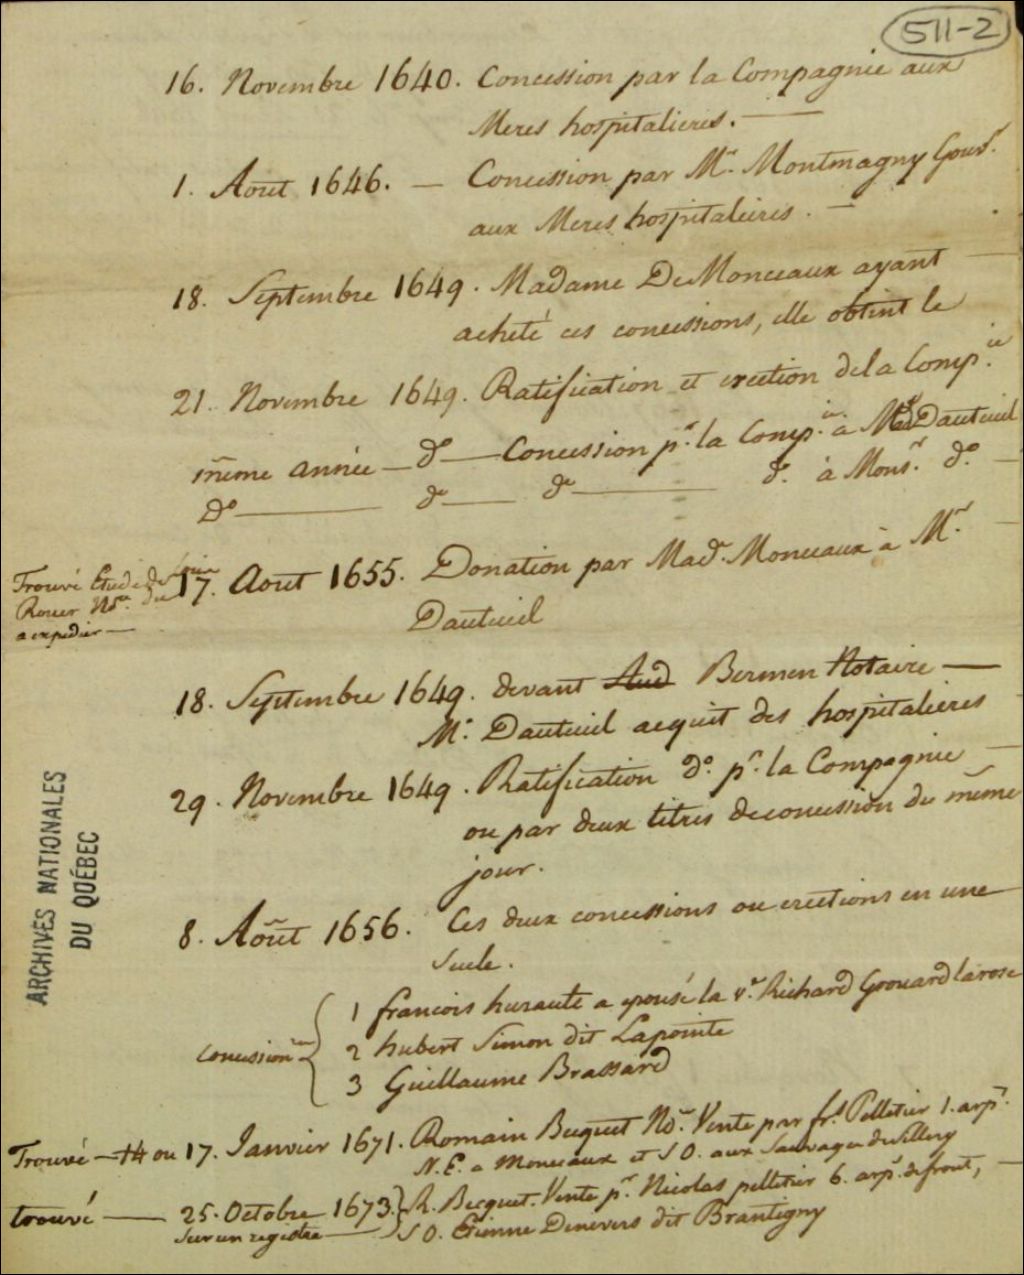 511-2
16. Novembre 1640. Concession par la Compagnie aux
Meres hospitalieres.
1. Aout 1646. — Concession par Mr. Montmagny Gouvr.
aux Meres hospitalieres. —
18. Septembre 1649. Madame De Monceaux ayant —
acheté ces concessions, elle obtint le
21. Novembre 1649. Ratification et erection de la Comp.ie
même année — do — Concession pr. la Comp.ie à Dauteuil
do — do — do — do. à Monsr. do. —
17. Aout 1655. Donation par Made. Monceaux à Mr. —
Dauteuil
Trouvé Etude de
Rouer Nore. du
a expedier —
18. Septembre 1649. devant Aud Bermen Notaire —
Mr. Dauteuil acquit des hospitalieres
29. Novembre 1649. Ratification do. pr. la Compagnie —
ou par deux titres de concession du même
jour.
8. Août 1656. Ces deux concessions ou erections en une
seule.
ARCHIVES NATIONALES
DU QUÉBEC
1 francois huraute a epousé la ve. Richard Grouard larose
concession
2 hubert Simon dit Lapointe
3 Guillaume Brassard
Trouvé — 14 ou 17. Janvier 1671. Romain Becquet No.re Vente par frs. Pelletier 1. arpt.
N. E. a Monceaux et S O. aux Sauvages de Sillery
trouvé — 25. Octobre 1673. R. Becquet. Vente pr. Nicolas pelletier 6. arpt. de front, —
sur un registre — S O. Etienne Denevers dit Brantigny